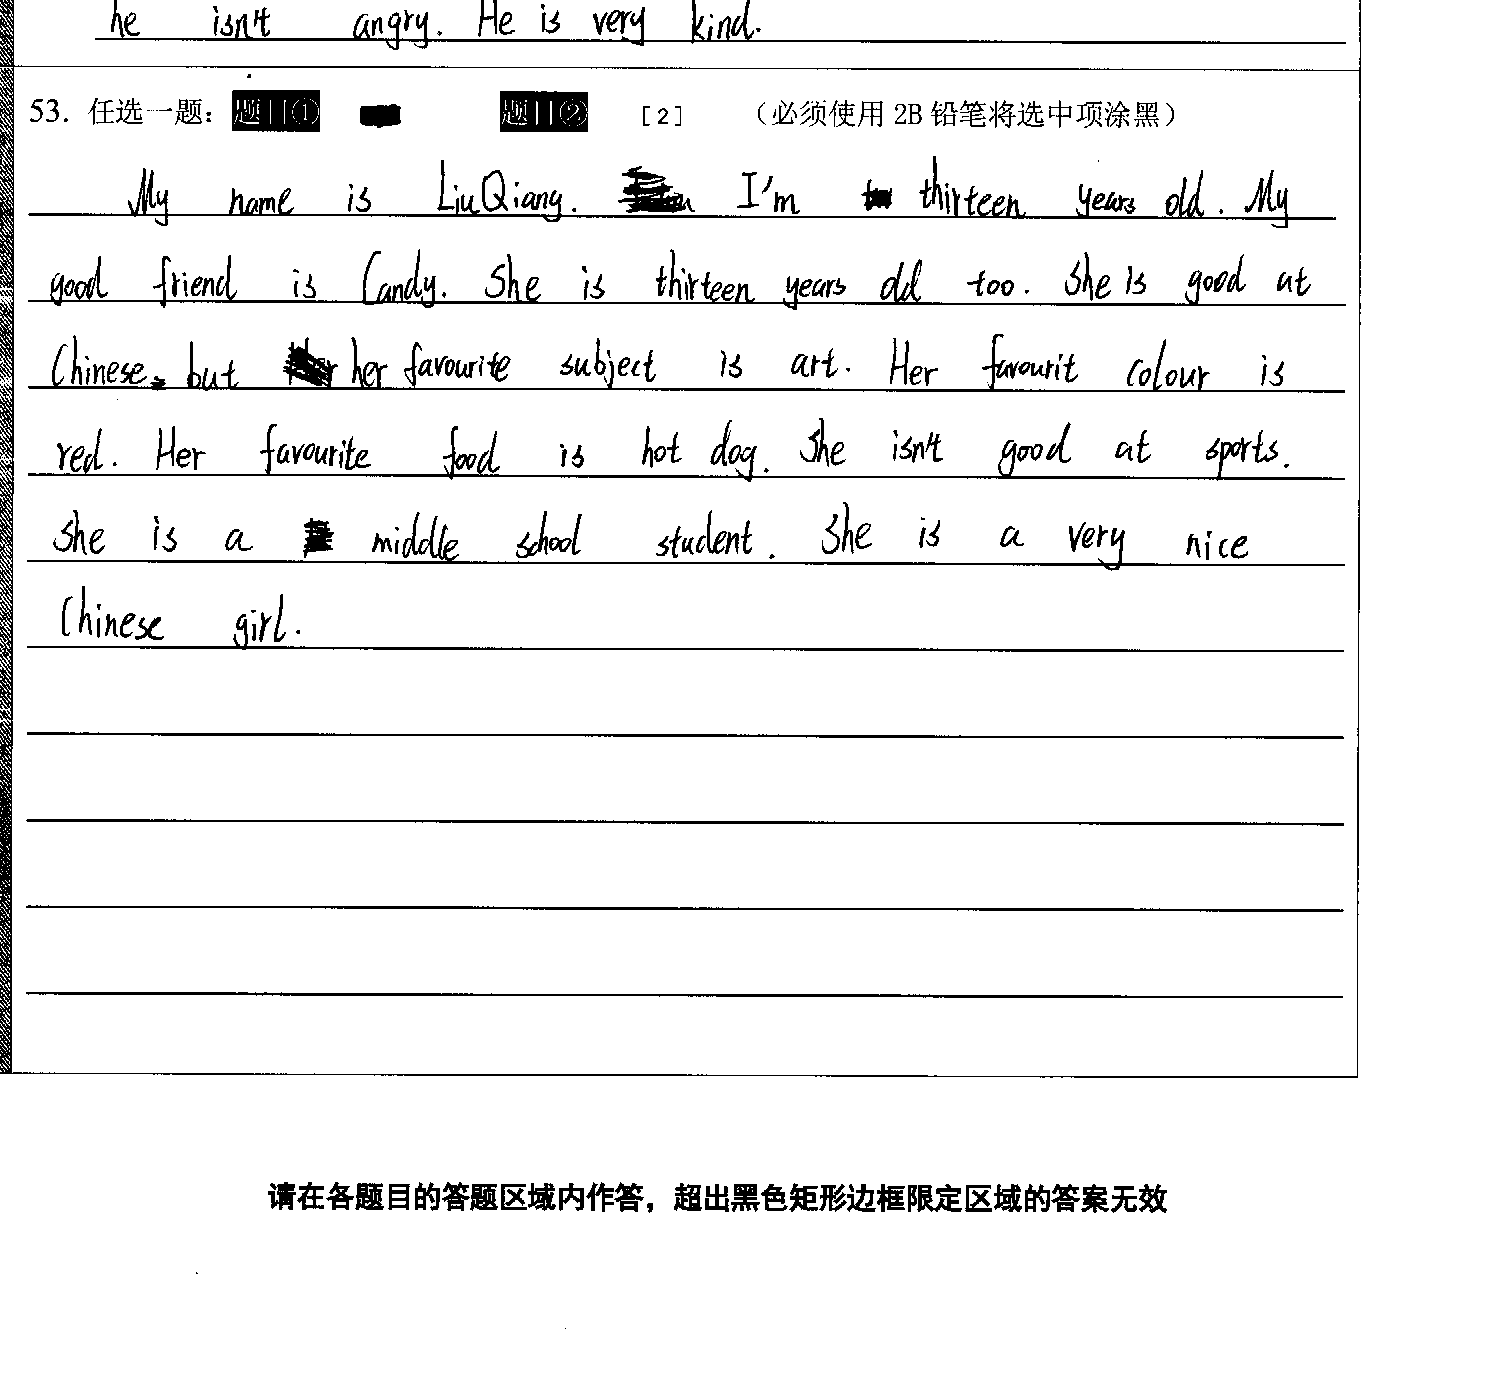 he isn't angry. He is very kind.
53. 任选一题: 题目① 题目② [2] (必须使用 2B 铅笔将选中项涂黑)
My name is LiuQiang. I'm thirteen years old. My
good friend is Candy. She is thirteen years old too. She is good at
Chinese. but her favourite subject is art. Her favourit colour is
red. Her favourite food is hot dog. She isn't good at sports.
She is a middle school student. She is a very nice
Chinese girl.
请在各题目的答题区域内作答，超出黑色矩形边框限定区域的答案无效